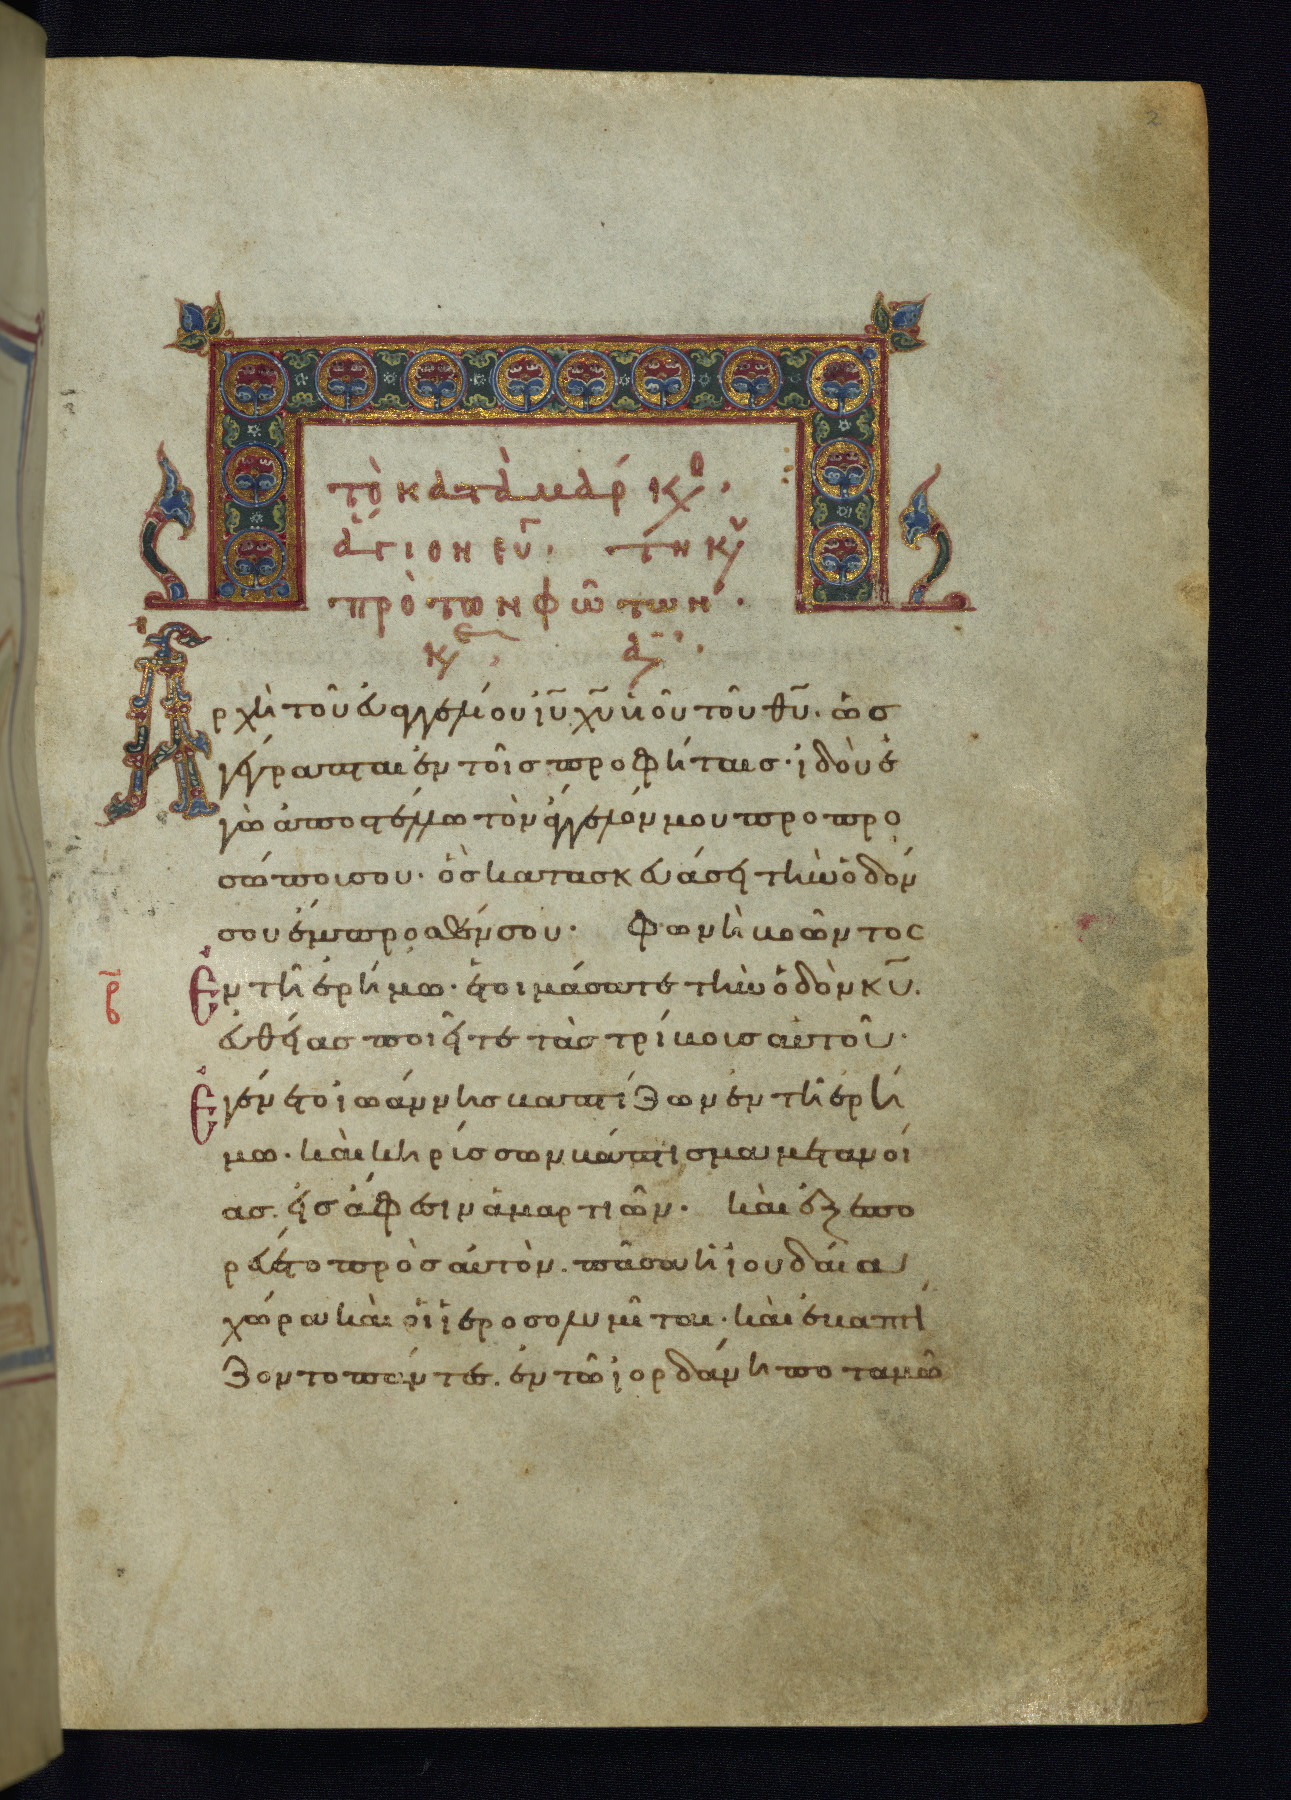 2
τὸ κατὰ μάρκον
ἅγιον εὐ. τῆ κυ
πρὸ τῶν φώτων.
Αρχὴ τοῦ εὐαγγελίου ιυ χυ υιοῦ τοῦ θυ. ὡς
γέγραπται ἐν τοῖς προφήταις. ἰδοὺ ἐ
γὼ ἀποστέλλω τὸν ἄγγελόν μου προ προ
σώπου σου. ὃς κατασκευάσει τὴν ὁδόν
σου ἔμπροσθέν σου. φωνὴ βοῶντος
Ἐν τῆ ἐρήμω. ἑτοιμάσατε τὴν ὁδὸν κυ.
εὐθείας ποιεῖτε τὰς τρίβους αὐτοῦ.
Ἐγένετο ἰωάννης βαπτίζων ἐν τῆ ἐρή
μω. καὶ κηρύσσων βάπτισμα μετανοί
ας. εἰς ἄφεσιν ἁμαρτιῶν. καὶ ἐξεπο
ρεύετο πρὸς αὐτὸν. πᾶσα ἡ ἰουδαία
χώρα καὶ οἱ ἱεροσολυμῖται. καὶ ἐβαπτί
ζοντο πάντες. ἐν τῶ ἰορδάνη ποταμῶ